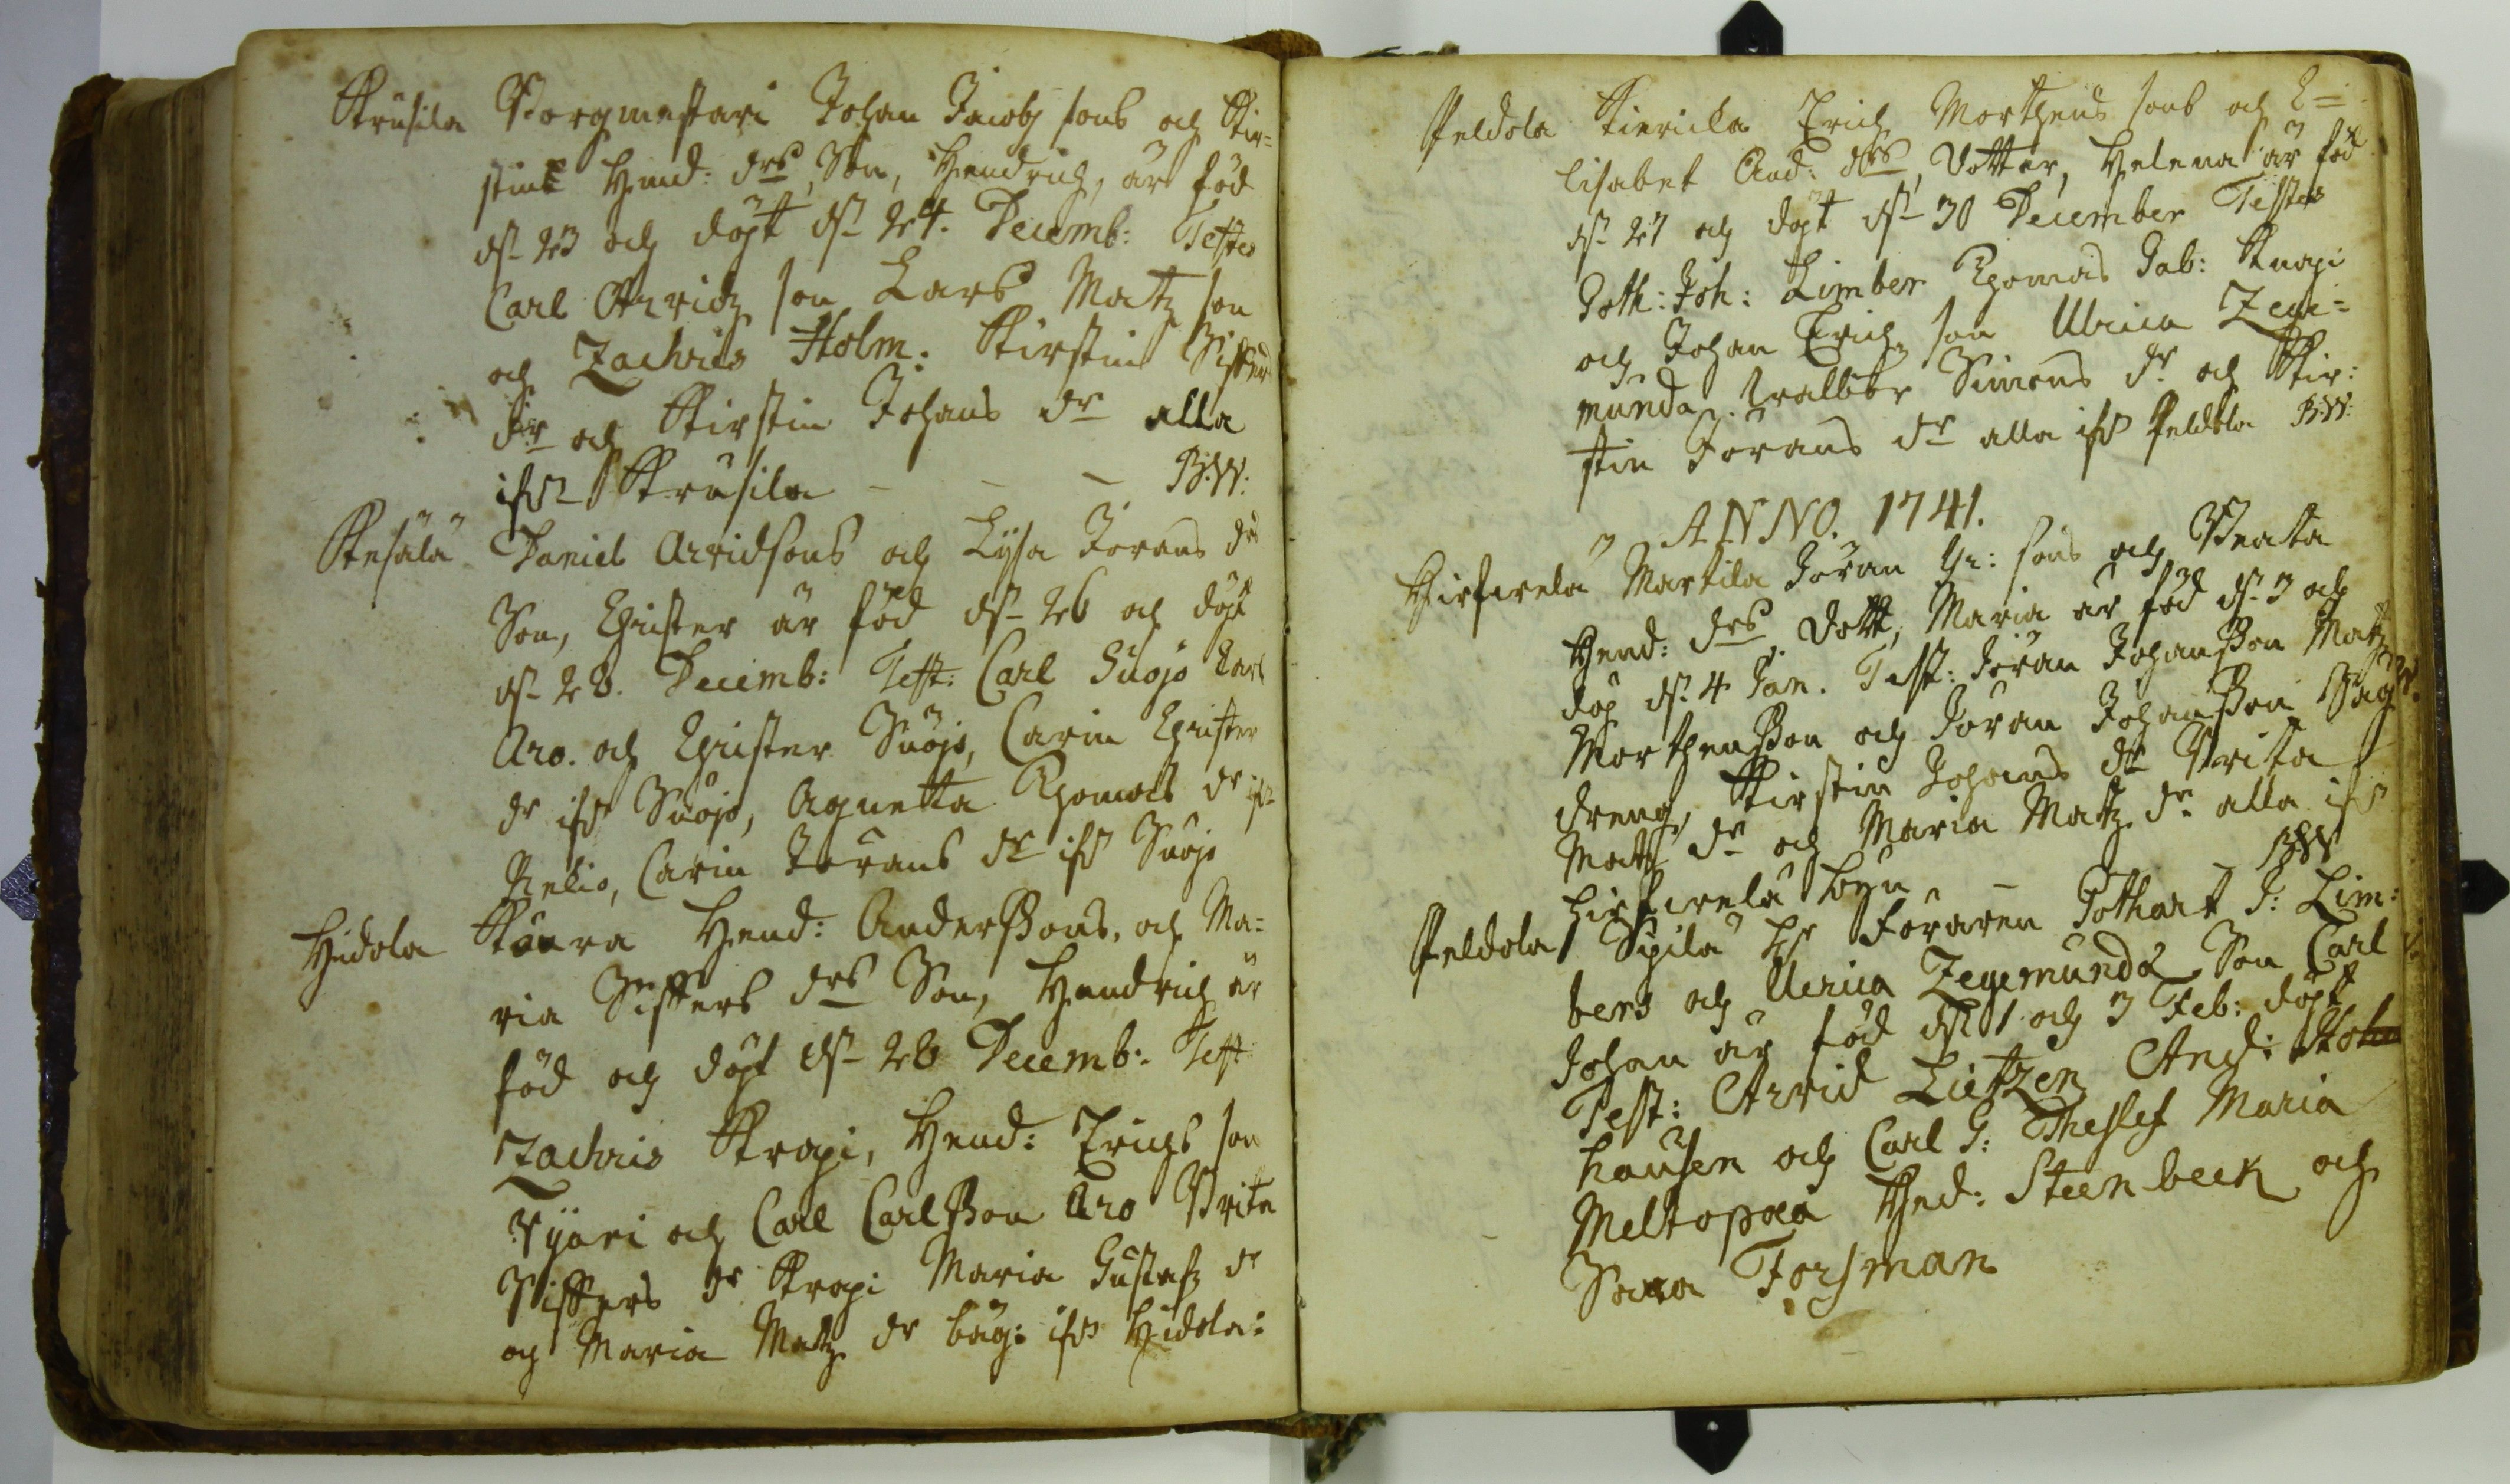 Krusila Borgmestari Johan Jacobs sons och Kir=
stins Hend: drs, Son, Hendrich, är föd
d. 23 och döpt d. 24. Decemb: Testes
Carl Arvidz son Lars Matz son
och Zachris Holm. Kirstin Siffred
dr och Kirstin Johans dr alla
ifr. Krusila - - - B:W:
Kesälä Daniel Arvidsons och Lysa Jörans drs
Son, Christer är föd d. 26 och döpt
d. 28. Decemb: Test: Carl Suojo Carl
Aro. och Christer Suojo, Carin Christer
dr ifr Suojo, Agnetta Thomas dr ifr
Relio, Carin Jörans dr ifr Suojo
Hidola Kaura Hend: Anderssons, och Ma=
ria Siffers drs Son, Hendrich är
föd och döpt d. 28 Decemb: Test
Zachris Krapi, Hend: Erichs son
och Carl Carlsson Aro Brita
Siffers dr Krapi Maria Gustafz dr
och Maria Matz dr bäg: ifr Hidola:
Peldola Kiericka Erich Morthens sons och E=
lisabet And: drs, Dotter, Helena är föd
d. 27 och döpt d. 30 December Testes
Goth: Joh: Limber Thomas Jab: Knapi
och Johan Erichz son Ulrica Zege=
munda, Simons dr och Kir:
stin Jörans dr alla ifr Peldola B:W:
ANNO. 1741.
Martila Jöran Yr: sons och Beata
Hend: drs. Dott, Maria är föd d. 3 och
döp d. 4 Jan. Test: Jöran Johansson Matz
Morthensson och Jöran Johansson
dreng, Kirstin Johans dr Brita
Matz dr och Maria Matz dr alla ifr
byn - BW
Peldola Sipilä Hr Föraren Gothart J: Lim:
bers och Ulrica Zegemunda Son Carl
Johan är föd d. 1 och 3 Feb: döpt
Test: Arvid Lietzen And: Hoh
hausen och Carl G: Theslef Maria
Meltopaa Hed: Steenbeck och
Sara Forsman